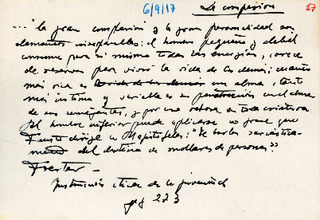 6/9/17
La compasion
27
..." la gran compasion y la gran personalidad son
elementos inseparables: el hombre pequeño y debil
consume para si mismo todas las energias, carece
de reservas para vivir la vida de los demas; cuanto
mas rica es una alma, tanto
mas intima y es su
de sus semejantes, y por eso a toda criatura
Al hombre inferior puede aplicarse la frase que
Fausto dirige a Mefistofeles: "Te burlas
del destino de millares de personas"
Foerster —
Instrucción etica de la juventud
pag 223